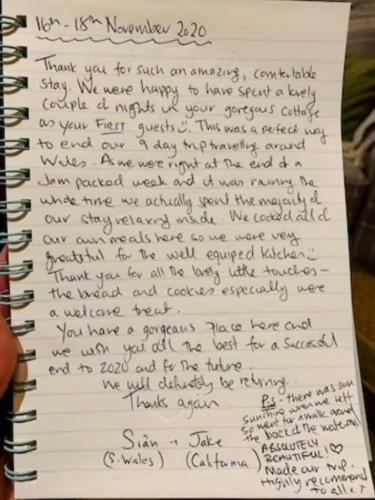 16th - 18th November 2020
Thank you for such an amazing, comfortable
stay. We were happy to have spent a lovely
couple of nights in your goregous cottage
as your First guests :). This was a perfect way
to end our 9 day trip travelling around
Wales. As we were right at the end of a
Jam packed week and it was raining the
whole time we actually spent the majority of
our stay relaxing inside. We cooked all of
our own meals here so we were very
greatful for the well equiped kitchen :)
Thank you for all the lovely little touches -
the bread and cookies especially were
a welcome treat.
You have a gorgeous place here and
we wish you all the best for a successful
end to 2020 and for the future.
We will definitely be returning.
Thanks again
Siân + Jake
(S. Wales) (California)
P.s - there was some
sunshine when we left
so went for a walk around
the back of the waterfall
ABSOLUTELY
BEAUTIFUL! ♡
Made our trip.
Highly recommend
to all